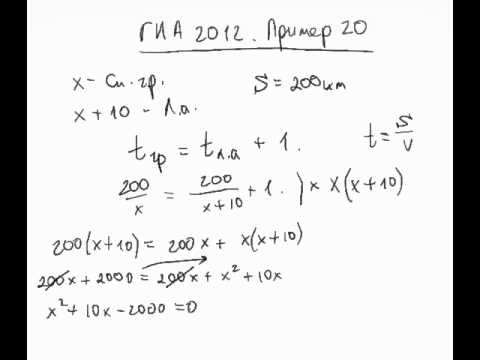 ГИА 2012. Пример 20
x - Ск. гр. S = 200 км
x + 10 - Л.а.
t гр = t л.а + 1. t = S/V
200/x = 200/(x+10) + 1. ) × x(x+10)
200(x+10) = 200x + x(x+10)
200x + 2000 = 200x + x² + 10x
x² + 10x - 2000 = 0